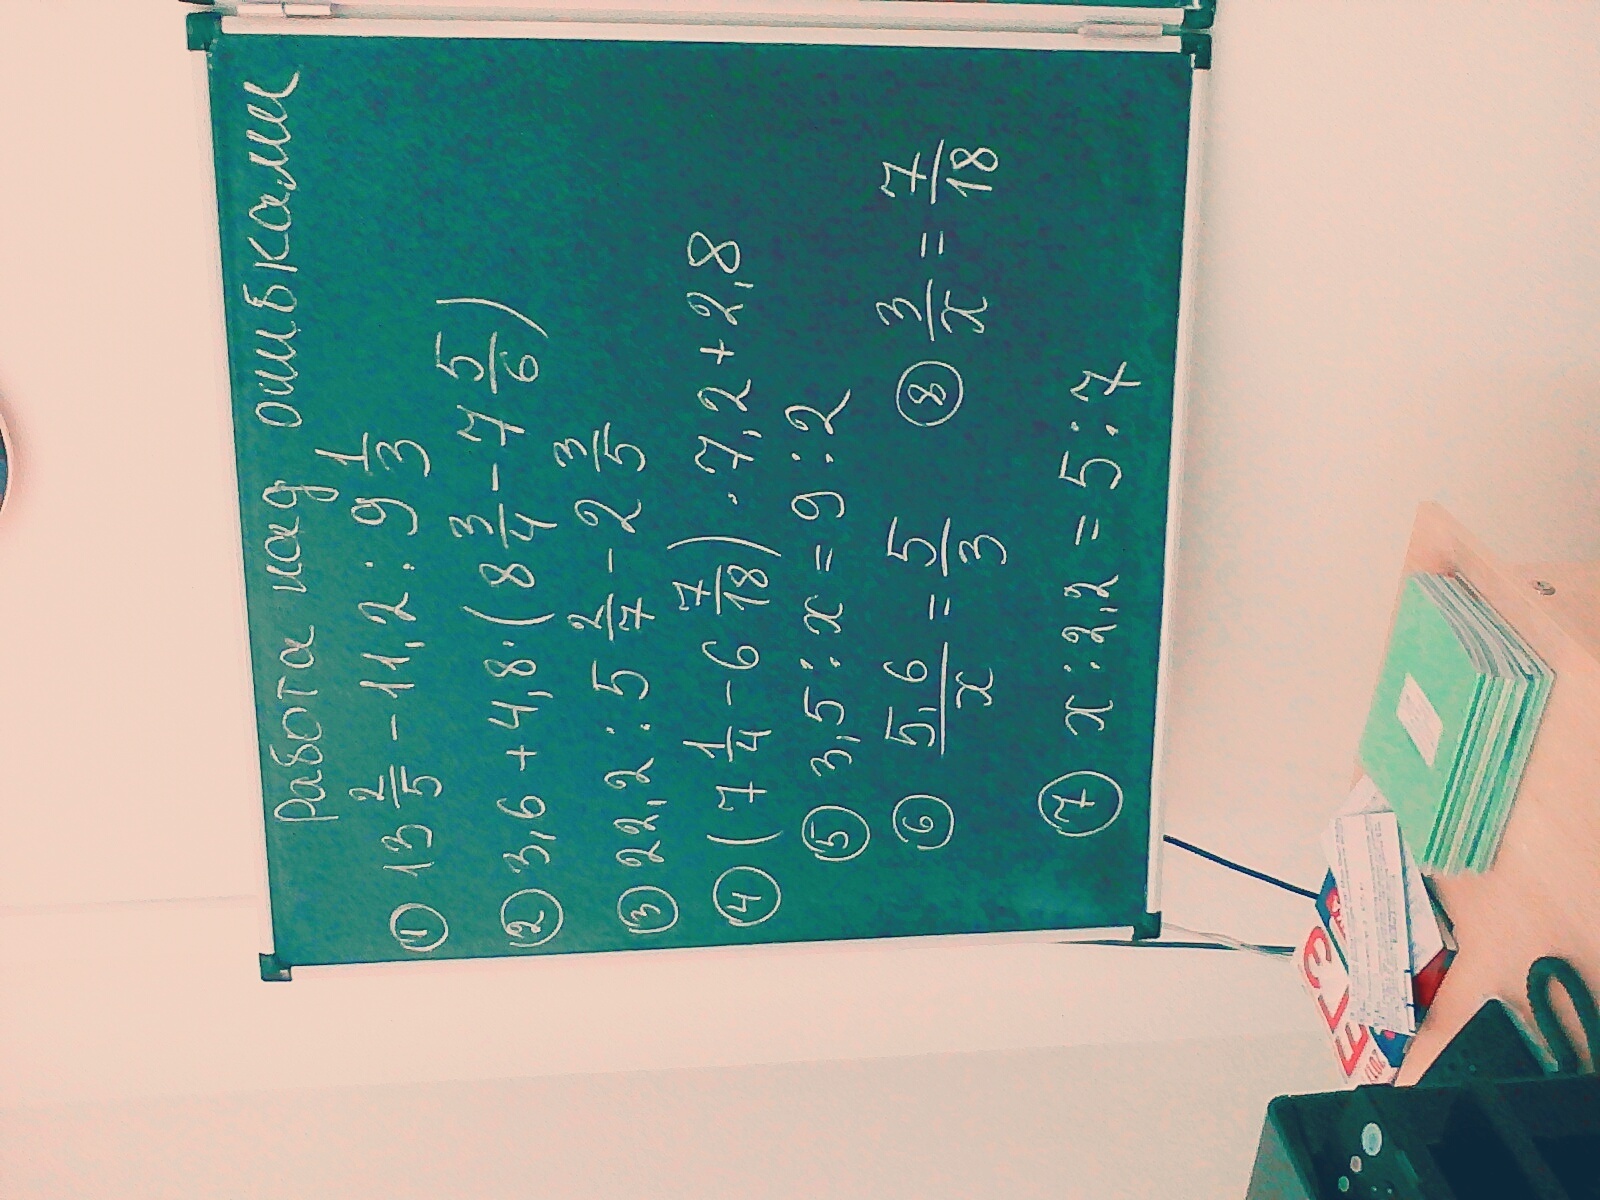 Работа над ошибками
① 13 2/5 - 11,2 : 9 1/3
② 3,6 + 4,8 · (8 3/4 - 7 5/6)
③ 22,2 : 5 2/7 - 2 3/5
④ (7 1/4 - 6 7/18) · 7,2 + 2,8
⑤ 3,5 : x = 9 : 2
⑥ 5,6/x = 5/3 ⑧ 3/x = 7/18
⑦ x : 2,2 = 5 : 7
ЕГЭ
2017